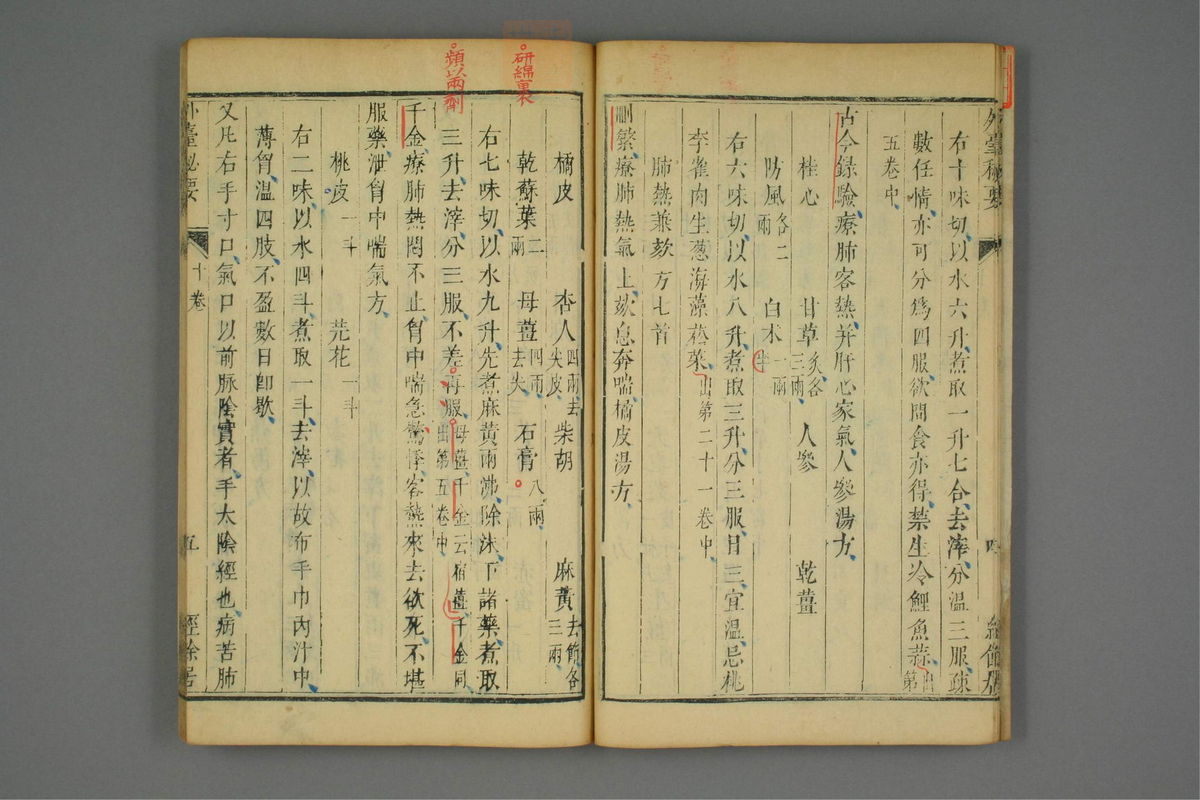 外臺秘要
四
右十味切以水六升煮取一升七合去滓分溫三服疎
數任情亦可分爲四服欲間食亦得禁生冷鯉魚蒜出第
五卷中
古今錄驗療肺客熱并肝心家氣人參湯方
桂心 甘草炙各三兩 人參 乾薑
防風各二兩 白术一兩半
右六味切以水八升煮取三升分三服日三宜溫忌桃
李雀肉生葱海藻菘菜出第二十一卷中
肺熱兼欬方七首
刪繁療肺熱氣上欬息奔喘橘皮湯方
研綿裏
頻以兩劑
橘皮 杏人四兩去尖皮 柴胡 麻黃去節各三兩
乾蘇葉二兩 母薑四兩去 石膏八兩
右七味切以水九升先煮麻黃兩沸除沫下諸藥煮取
三升去滓分三服不差再服母薑千金云宿薑千金同出第五卷中
千金療肺熱悶不止胷中喘急驚悸客熱來去欲死不堪
服藥泄胷中喘氣方
桃皮一斗 芫花一斗
右二味以水四斗煮取一斗去滓以故布手巾內汁中
薄胷溫四肢不盈數日卽歇
又凡右手寸口氣口以前脉陰實者手太陰經也病苦肺
外臺秘要
十卷
五
經餘居